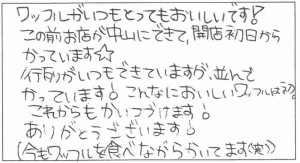 ワッフルがいつもとってもおいしいです!
この前お店が中山にできて、開店初日から
かっています☆
行列がいつもできていますが、並んで
かっています! こんなにおいしいワッフルは初。
これからもかいつづけます!
ありがとうございます!
(今もワッフルを食べながらかいてます(笑))